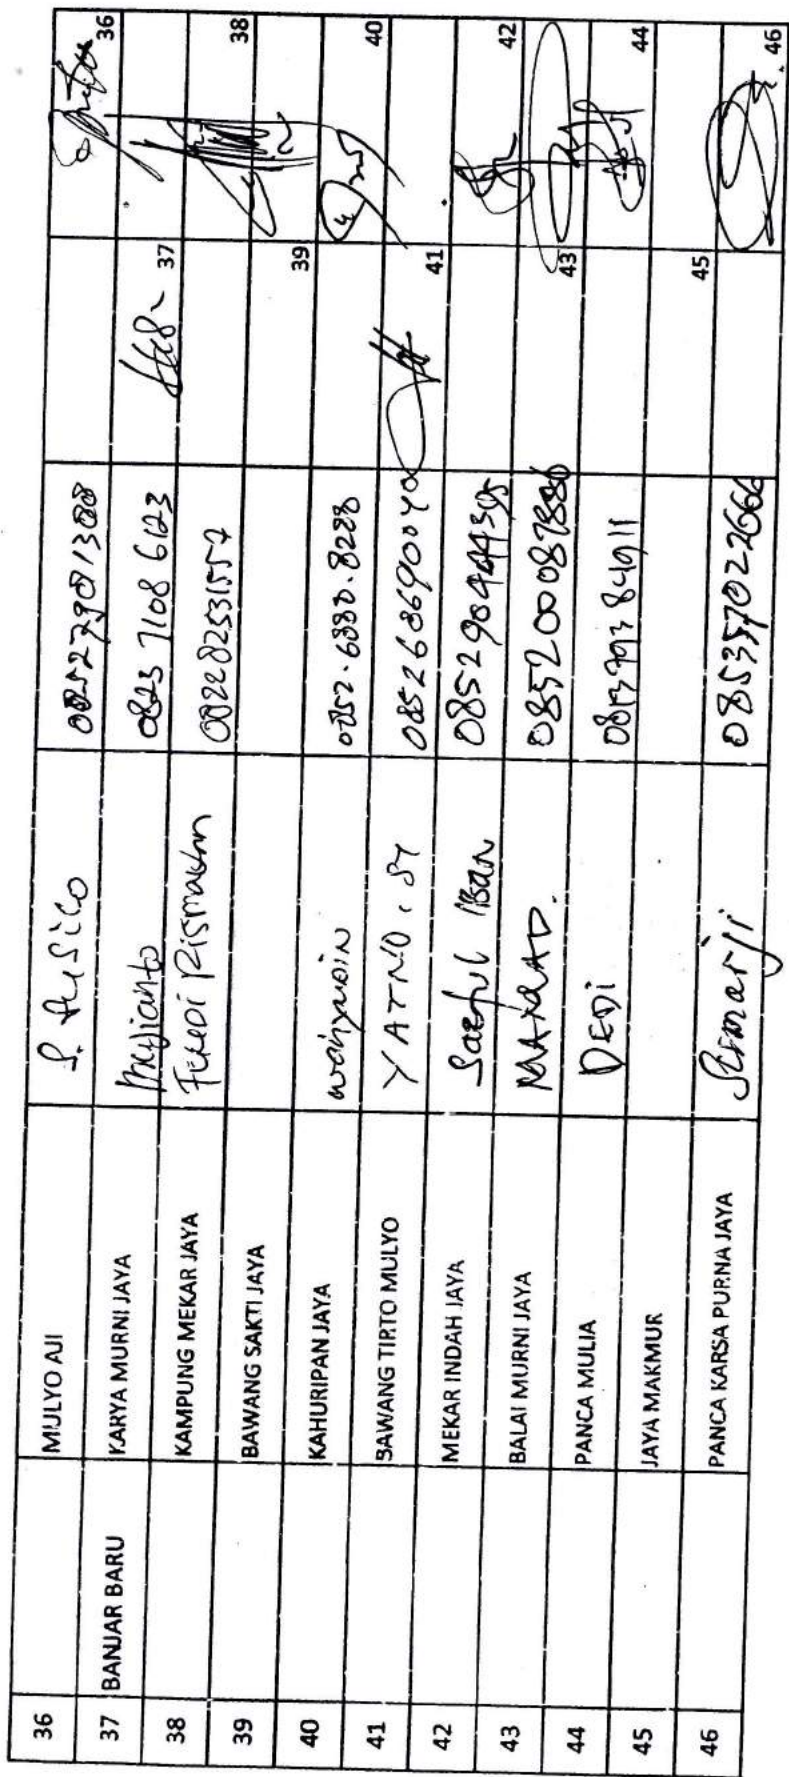 36 MULYO AJI S. Aus Sico 085279071388 36
37 BANJAR BARU KARYA MURNI JAYA Meljianto 0823 7108 6123 37
38 KAMPUNG MEKAR JAYA Rismawan 082282531557 38
39 BAWANG SAKTI JAYA 39
40 KAHURIPAN JAYA wahyudin 0852.6880.8228 40
41 BAWANG TIRTO MULYO YATNO, ST 085268690040 41
42 MEKAR INDAH JAYA Saeful 085290444395 42
43 BALAI MURNI JAYA 43
44 PANCA MULIA DEDI 081379384911 44
45 JAYA MAKMUR 45
46 PANCA KARSA PURNA JAYA Sumarji 085357022666 46